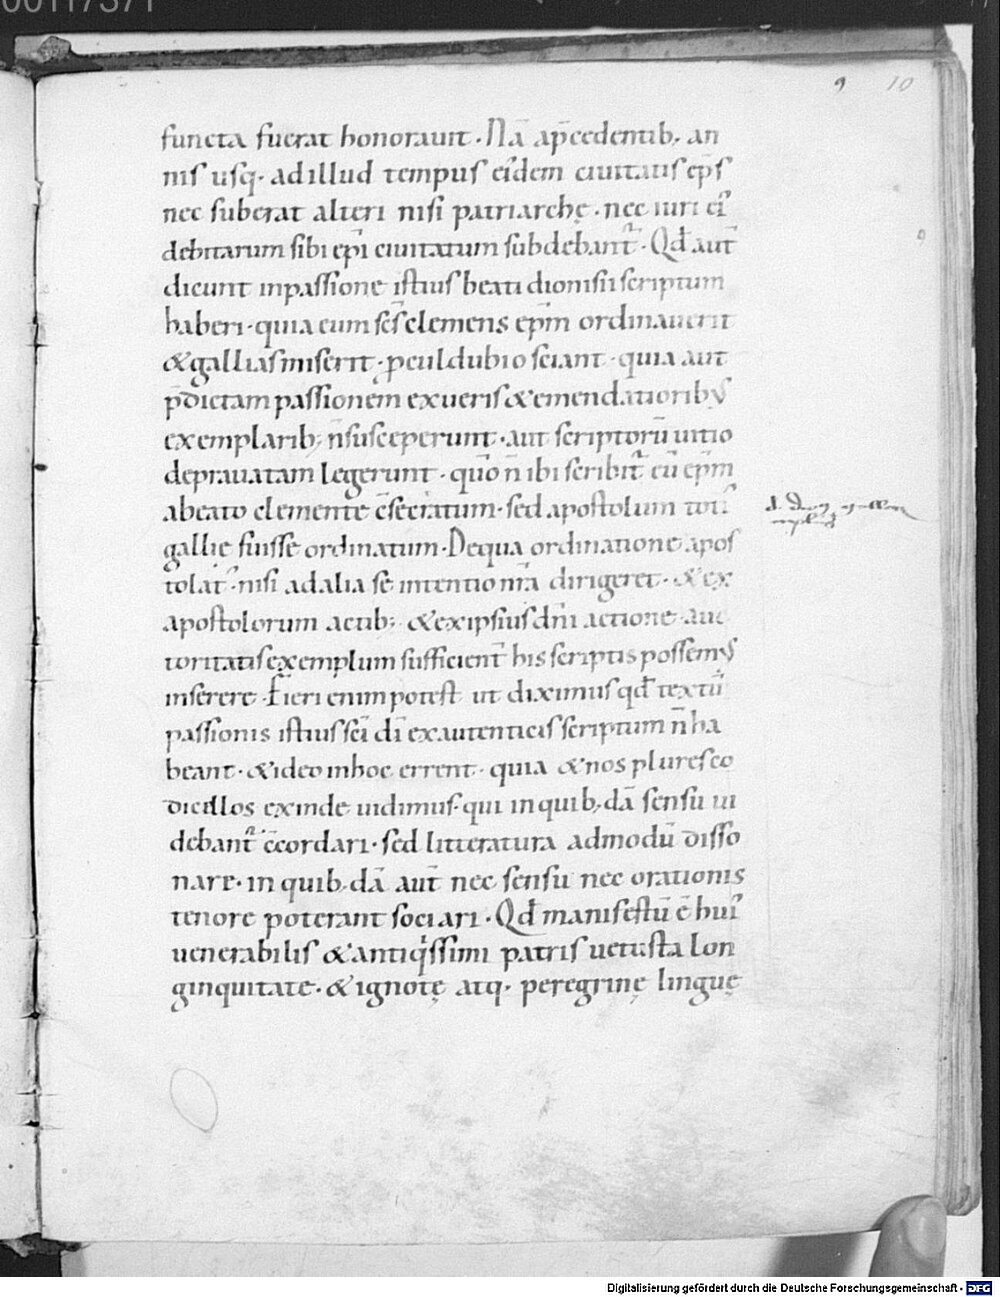 00117371
9 10
functa fuerat honorauit · Nā ap̄cedentib; an
nis usq; ad illud tempus eidem ciuitatis ep̄s
nec suberat alteri nisi patriarchę · nec iuri ei᾽
debitarum sibi ep̄i ciuitatum subdebant᷑ · Qđ aut̄
dicunt inpassione istius beati dionisii scriptum
haberi · quia eum sc̄s clemens ep̄m ordinauerit
& gallias miserit · ꝓculdubio sciant · quia aut
p̄dictam passionem exueris & emendatioribus
exemplarib; n̄ susceperunt · aut scriptorū uitio
deprauatam legerunt · quō n̄ ibi scribit᷑ eū ep̄m
abeato clemente c̄secratum · sed apostolum toti᾽
gallię fuisse ordinatum · Dequa ordinatione apos
tolat᾽ · nisi adalia se intentio nr̄a dirigeret · & ex
apostolorum actib; & exipsius dn̄i actione auc
toritatis exemplum sufficient᷑ his scriptis possem᾽
inserere · Fieri enim potest ut diximus qđ textū
passionis istius sc̄i dī exautenticis scriptum n̄ ha
beant · & ideo inhoc errent · quia & nos plures co
dicillos exinde uidimus · qui in quib; dā sensu ui
debant᷑ c̄cordari · sed litteratura admodū disso
nare · in quib; dā aut̄ nec sensu nec orationis
tenore poterant sociari · Qđ manifestū ē hui᾽
uenerabilis & antiqissimi patris uetusta lon
ginquitate · & ignotę atq; peregrinę linguę
Digitalisierung gefördert durch die Deutsche Forschungsgemeinschaft - DFG